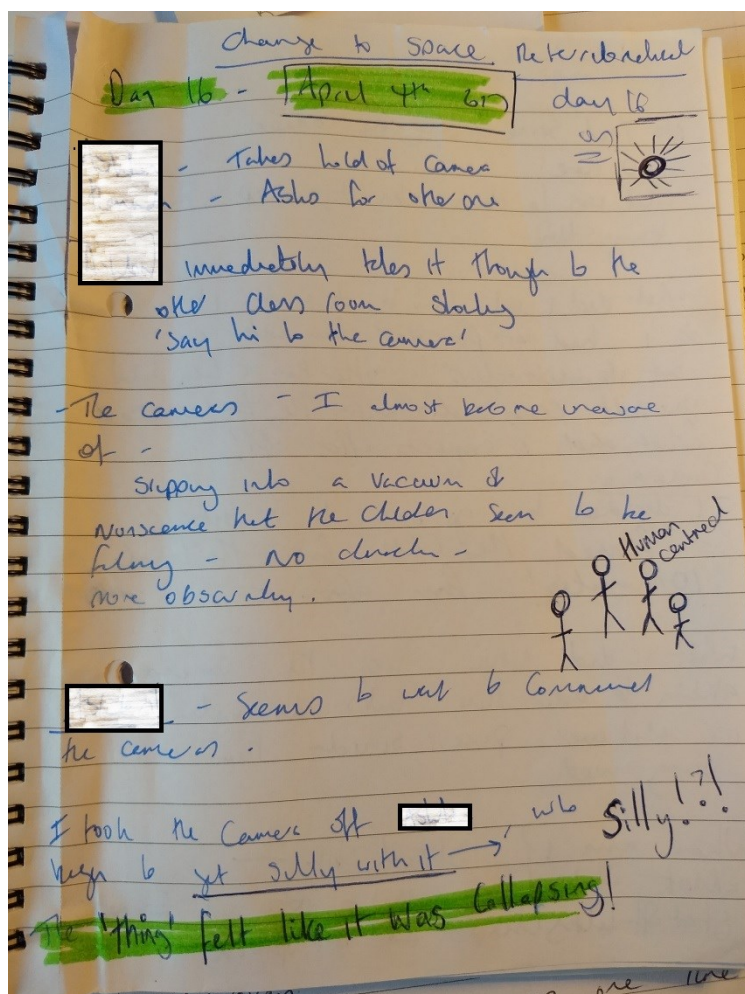 Change to space
Day 16 - April 4th day 16
- Takes hold of camera
- Asks for other one
immediately takes it though to the
other class room stating
'say hi to the camera'
- The cameras - I almost become unaware
of -
Slipping into a vacuum of
that the children seem to be
filming - No
more obscurity.
Human
centred
- Seems to want to
the cameras.
I took the camera off , who
began to get silly with it → Silly!?!
The 'thing' felt like it was collapsing!